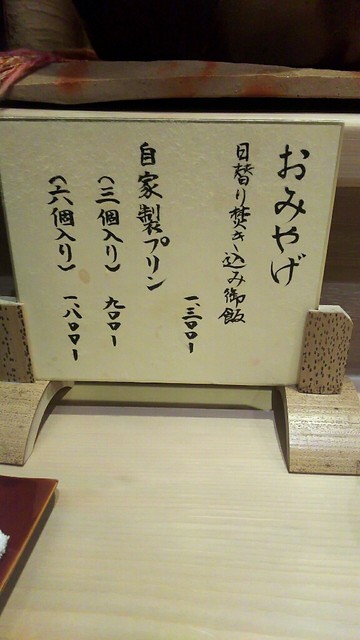 おみやげ
日替り焚き込み御飯
一、三〇〇ー
自家製プリン
（三個入り） 九〇〇ー
（六個入り） 一、八〇〇ー